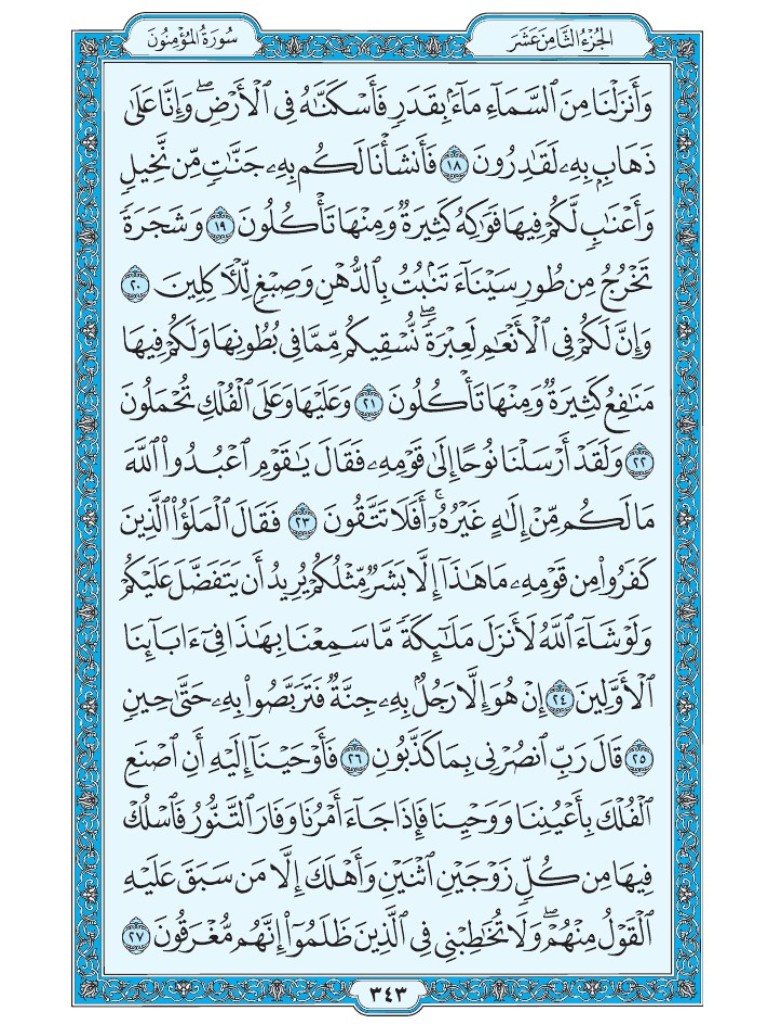 الجزء الثامن عشر
سورة المؤمنون
وَأَنزَلْنَا مِنَ ٱلسَّمَآءِ مَآءًۢ بِقَدَرٖ فَأَسْكَنَّٰهُ فِي ٱلْأَرْضِۖ وَإِنَّا عَلَىٰ
ذَهَابِۭ بِهِۦ لَقَٰدِرُونَ ١٨ فَأَنشَأْنَا لَكُم بِهِۦ جَنَّٰتٖ مِّن نَّخِيلٖ
وَأَعْنَٰبٖ لَّكُمْ فِيهَا فَوَٰكِهُ كَثِيرَةٞ وَمِنْهَا تَأْكُلُونَ ١٩ وَشَجَرَةٗ
تَخْرُجُ مِن طُورِ سَيْنَآءَ تَنۢبُتُ بِٱلدُّهْنِ وَصِبْغٖ لِّلْأٓكِلِينَ ٢٠
وَإِنَّ لَكُمْ فِي ٱلْأَنْعَٰمِ لَعِبْرَةٗۖ نُّسْقِيكُم مِّمَّا فِي بُطُونِهَا وَلَكُمْ فِيهَا
مَنَٰفِعُ كَثِيرَةٞ وَمِنْهَا تَأْكُلُونَ ٢١ وَعَلَيْهَا وَعَلَى ٱلْفُلْكِ تُحْمَلُونَ
٢٢ وَلَقَدْ أَرْسَلْنَا نُوحًا إِلَىٰ قَوْمِهِۦ فَقَالَ يَٰقَوْمِ ٱعْبُدُوا۟ ٱللَّهَ
مَا لَكُم مِّنْ إِلَٰهٍ غَيْرُهُۥٓۚ أَفَلَا تَتَّقُونَ ٢٣ فَقَالَ ٱلْمَلَؤُا۟ ٱلَّذِينَ
كَفَرُوا۟ مِن قَوْمِهِۦ مَا هَٰذَآ إِلَّا بَشَرٞ مِّثْلُكُمْ يُرِيدُ أَن يَتَفَضَّلَ عَلَيْكُمْ
وَلَوْ شَآءَ ٱللَّهُ لَأَنزَلَ مَلَٰٓئِكَةٗ مَّا سَمِعْنَا بِهَٰذَا فِيٓ ءَابَآئِنَا
ٱلْأَوَّلِينَ ٢٤ إِنْ هُوَ إِلَّا رَجُلُۢ بِهِۦ جِنَّةٞ فَتَرَبَّصُوا۟ بِهِۦ حَتَّىٰ حِينٖ
٢٥ قَالَ رَبِّ ٱنصُرْنِي بِمَا كَذَّبُونِ ٢٦ فَأَوْحَيْنَآ إِلَيْهِ أَنِ ٱصْنَعِ
ٱلْفُلْكَ بِأَعْيُنِنَا وَوَحْيِنَا فَإِذَا جَآءَ أَمْرُنَا وَفَارَ ٱلتَّنُّورُ فَٱسْلُكْ
فِيهَا مِن كُلّٖ زَوْجَيْنِ ٱثْنَيْنِ وَأَهْلَكَ إِلَّا مَن سَبَقَ عَلَيْهِ
ٱلْقَوْلُ مِنْهُمْۖ وَلَا تُخَٰطِبْنِي فِي ٱلَّذِينَ ظَلَمُوٓا۟ إِنَّهُم مُّغْرَقُونَ ٢٧
٣٤٣